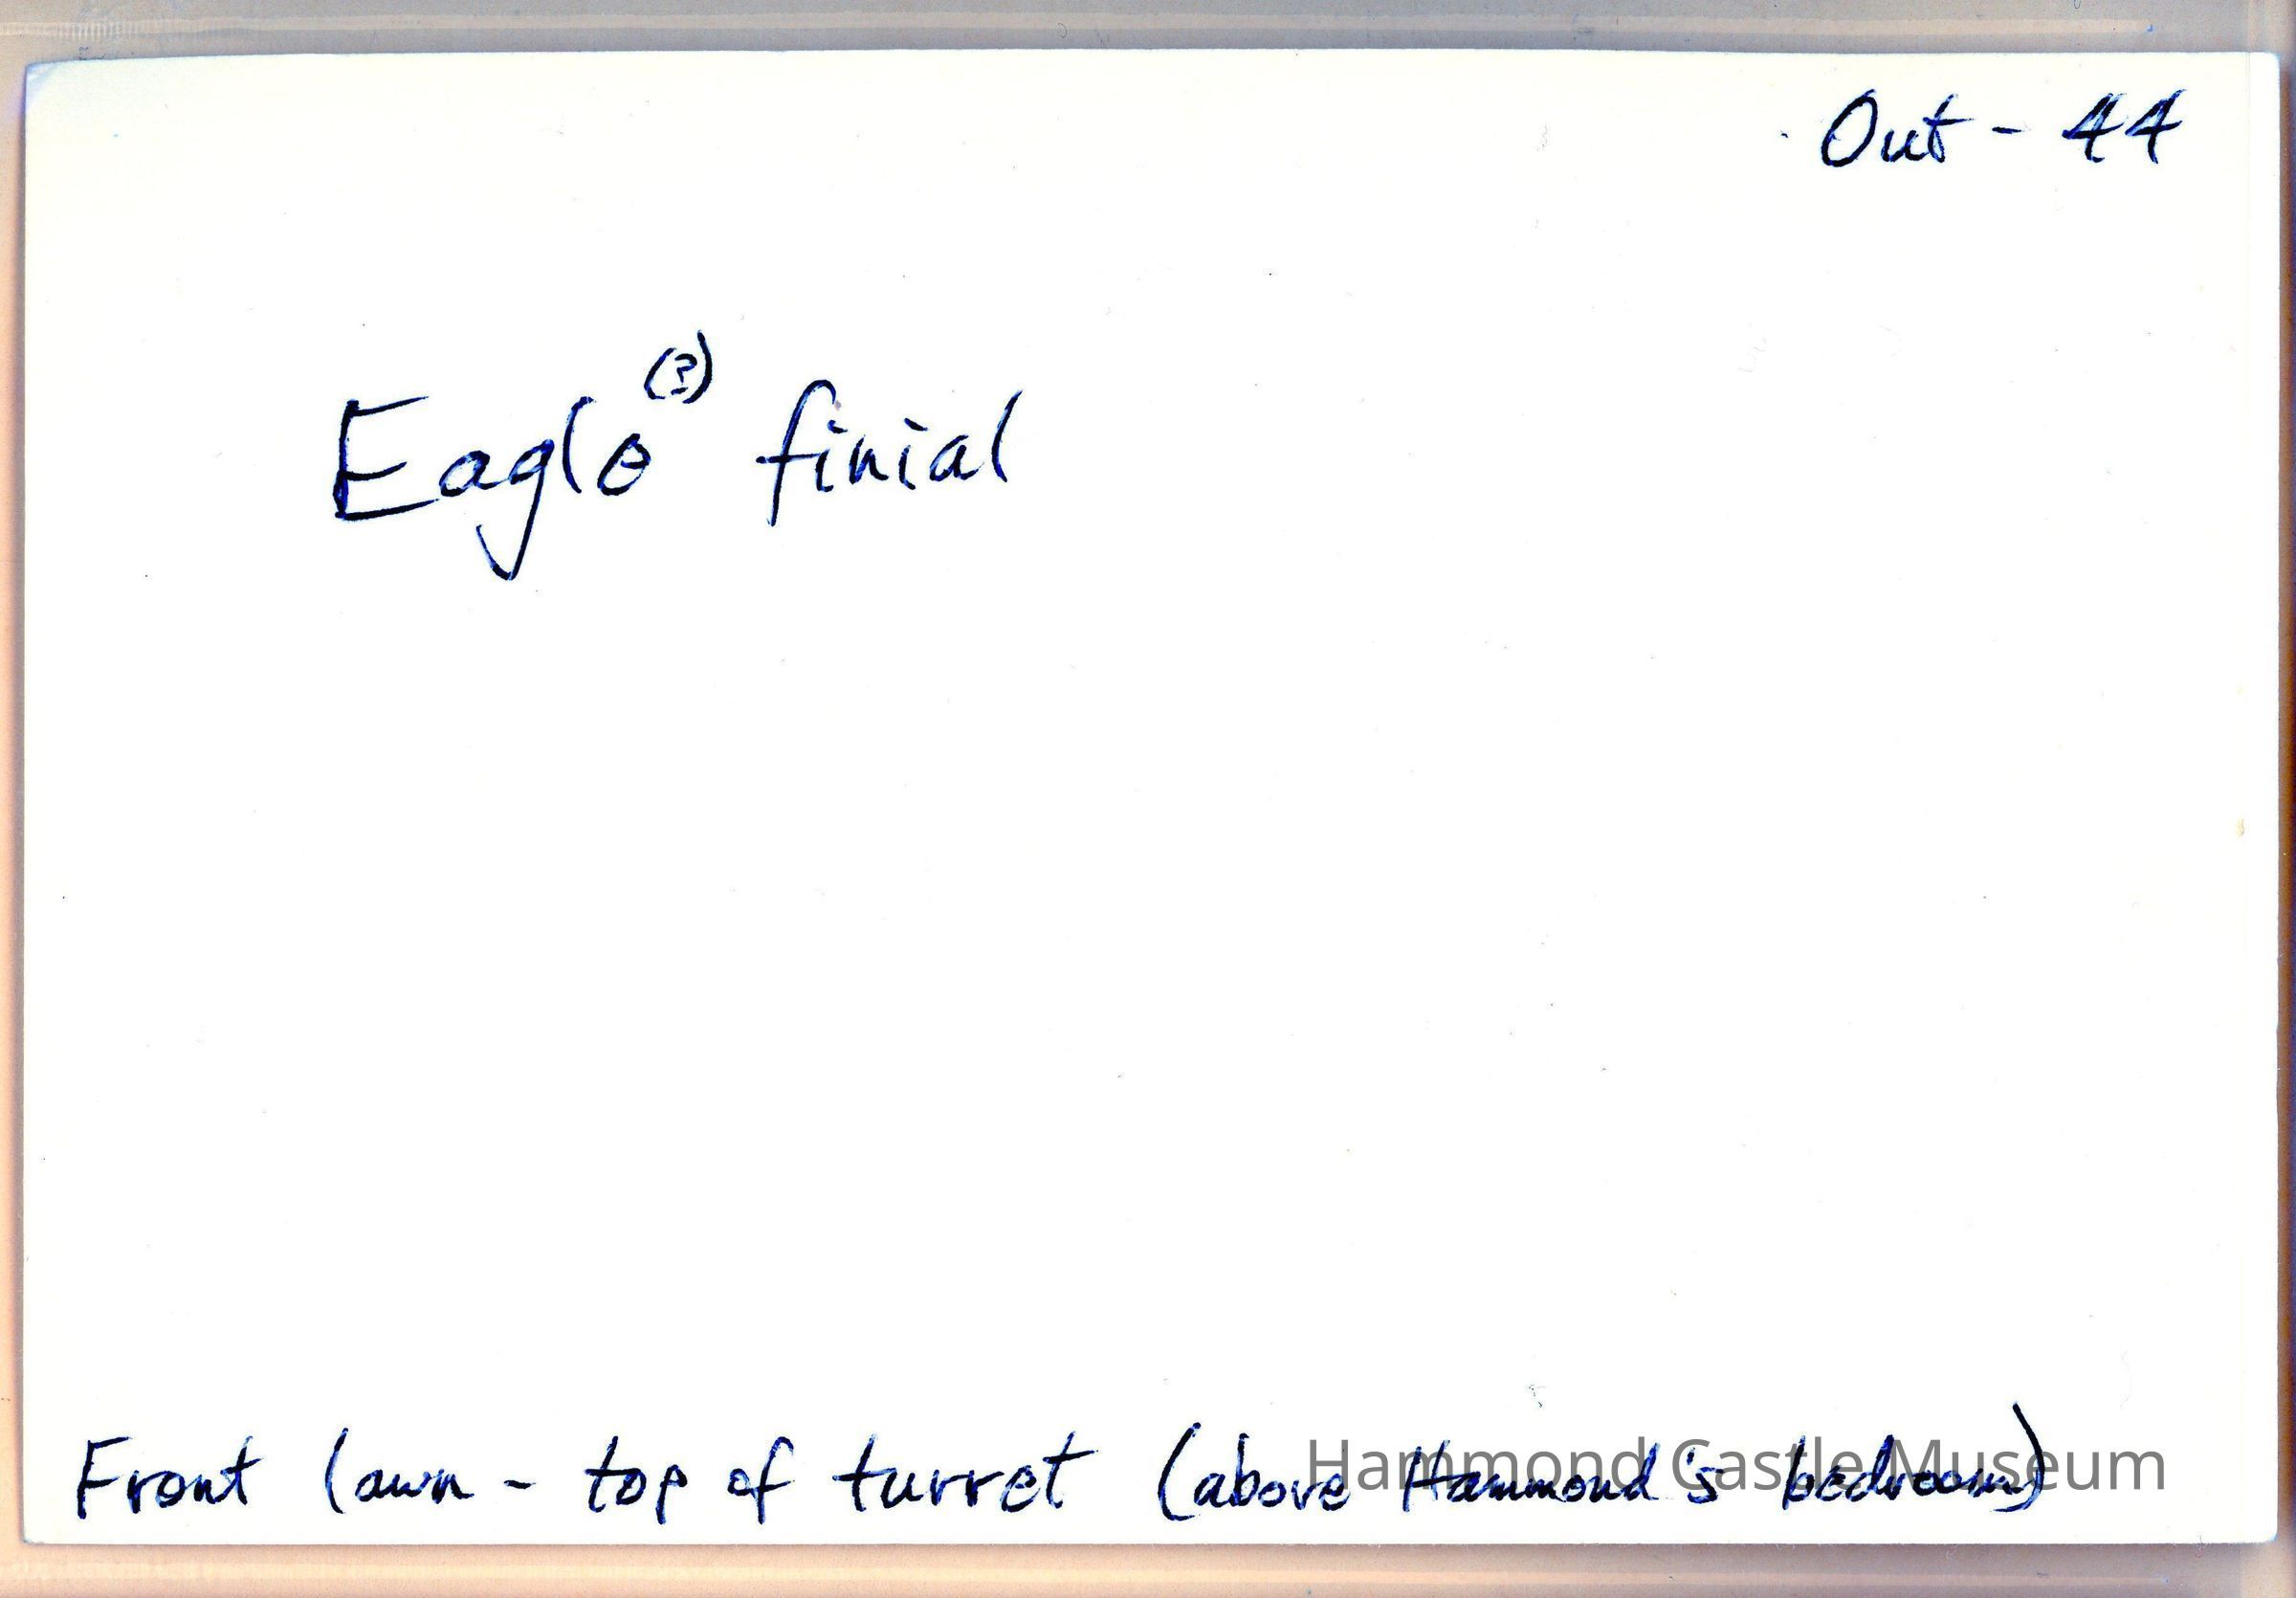 Out - 44
Eagle (?) finial
Front lawn - top of turret (above Hammond's bedroom)
Hammond Castle Museum